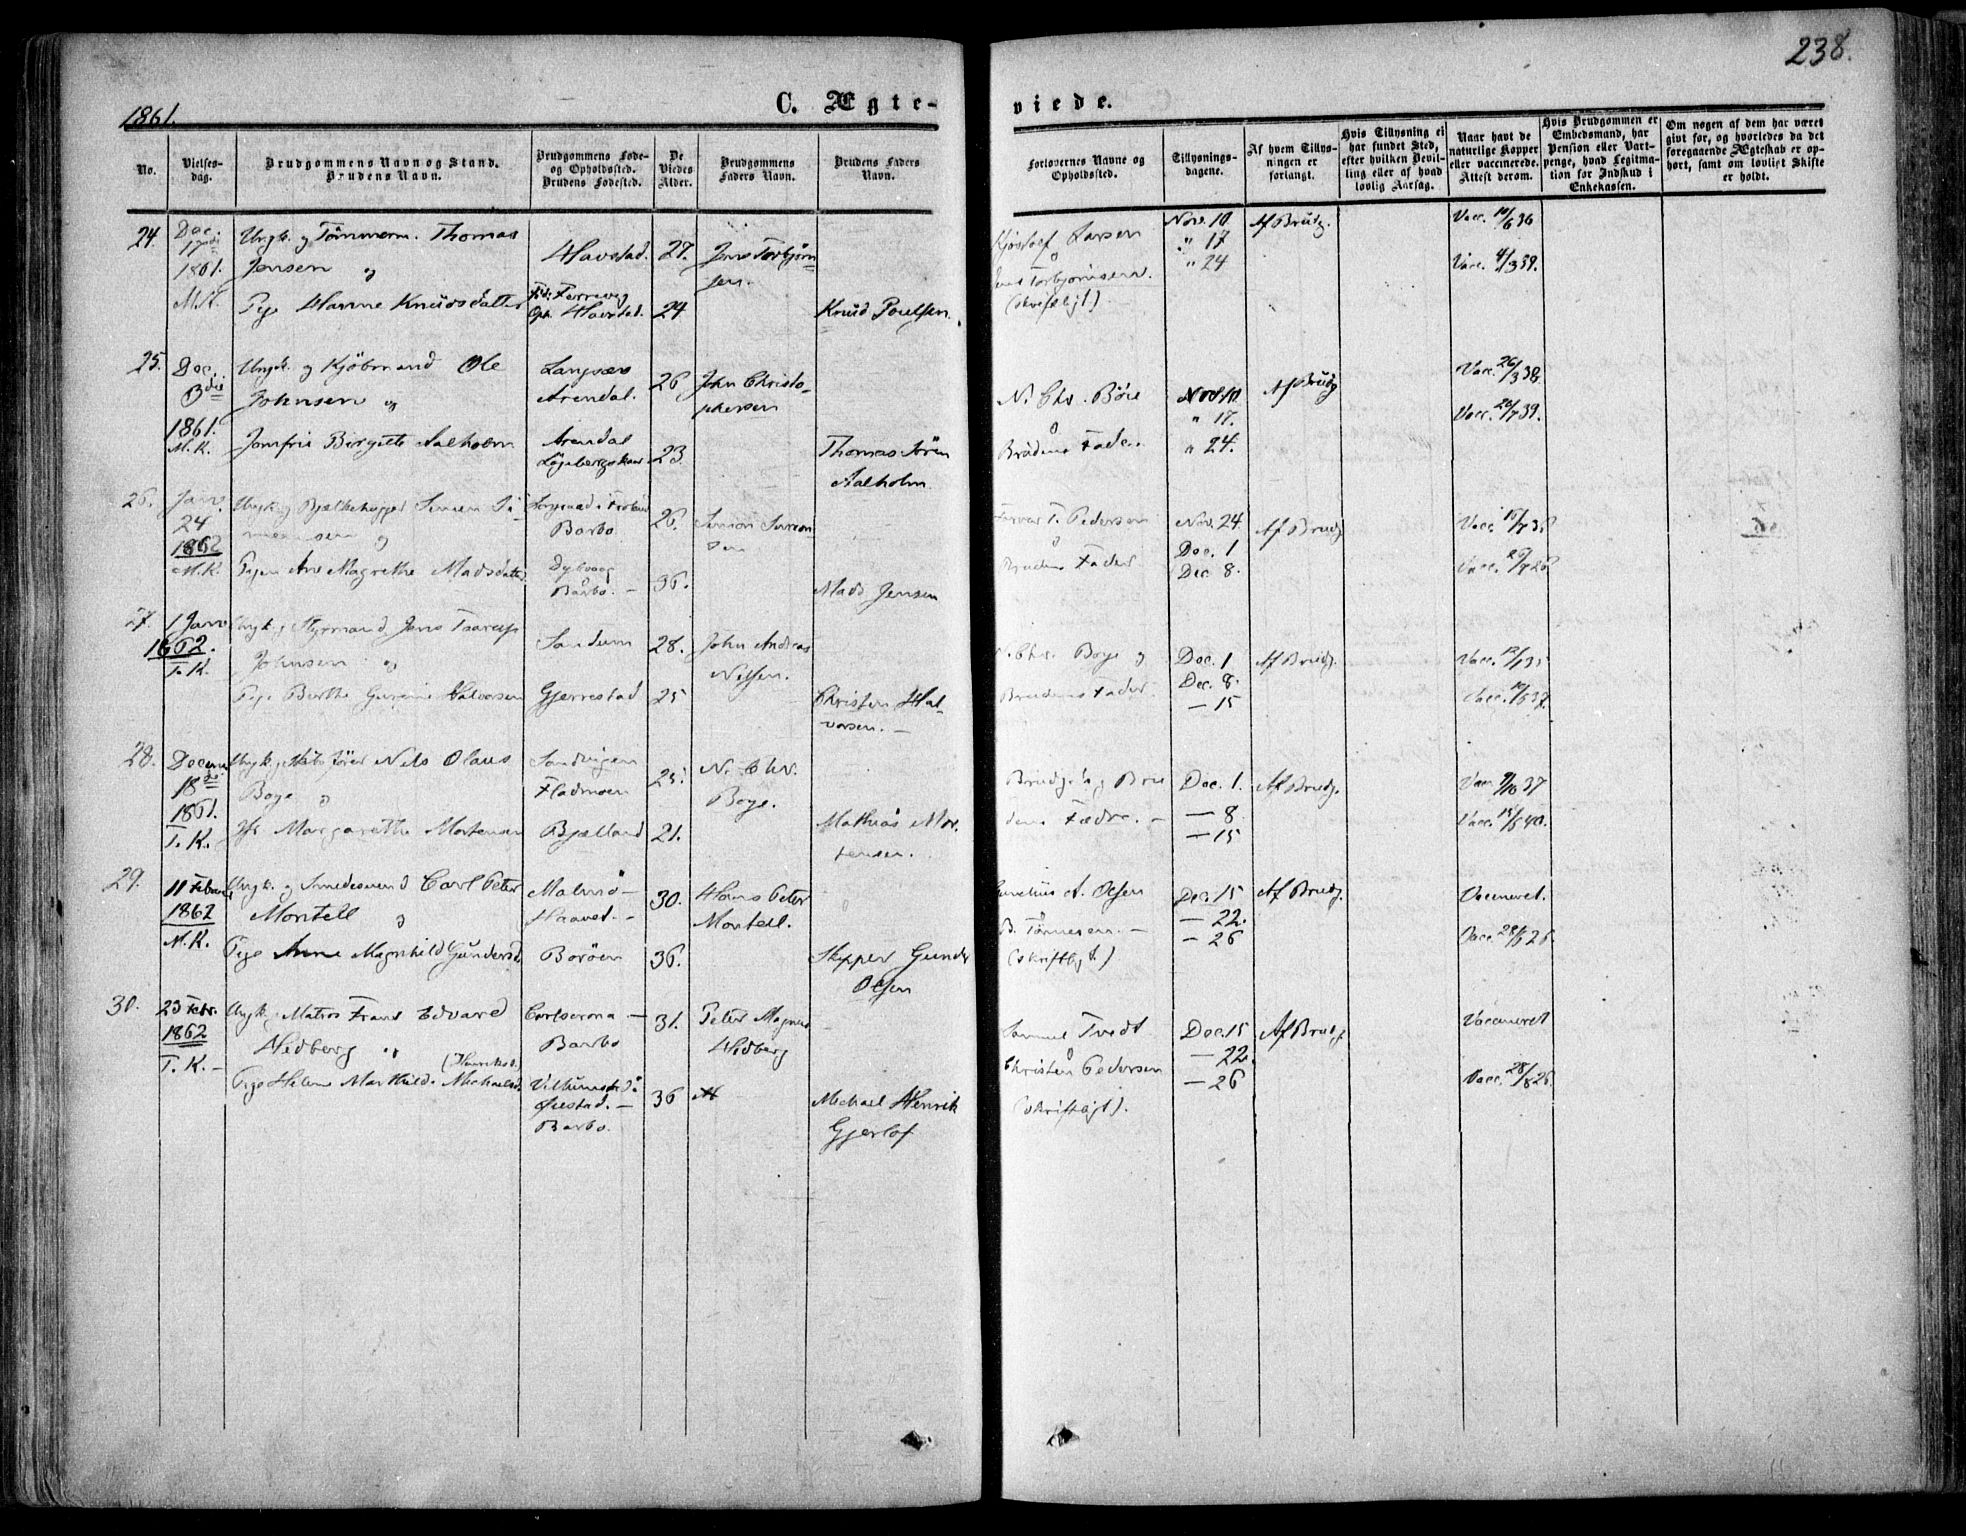 238.
1861.
C. Ægte-
viede.
No.
Vielses-
dag.
Brudgommens Navn og Stand.
Brudens Navn.
Brudgommens Føde-
og Opholdssted.
Brudens Fødested.
De
Viedes
Alder.
Brudgommens
Faders Navn.
Brudens Faders
Navn.
Forlovernes Navne og
Opholdssted.
Tillysnings-
dagene.
Af hvem Tillys-
ningen er
forlangt.
Hvis Tillysning ei
har fundet Sted,
efter hvilken Bevil-
ling eller af hvad
lovlig Aarsag.
Naar havt de
naturlige Kopper
eller vaccinerede.
Attest derom.
Hvis Brudgommen er
Embedsmand, har
Pension eller Vart-
penge, hvad Legitima-
tion for Indskud i
Enkekassen.
Om nogen af dem har været
givt før, og hvorledes da det
foregaaende Ægteskab er op-
hørt, samt om lovligt Skifte
er holdt.
24.
Dec.
17de
1861.
M.K.
Ungk. og Tömmerm. Thomas
Jensen og
Pige Hanne Knudsdatter
Havstad.
Færrevig
Oph. Havstad.
27.
24
Jens Torbjörn
sen.
Knud Poulsen.
Larsen
og
Jens Torbjörnsen.
(skriftligt)
Nov. 10
" 17
" 24
Af Brudg.
Vacc. 636
Vacc. 4/3 39.
25.
Dec.
3die
1861.
M.K.
Ungk. og Kjöbmand Ole
Johnsen og
Jomfru Birgitte Aalholm
Langsæ
Arendal.
Arendal
26
23
John Christo-
phersen
Thomas Sören
Aalholm
N. Chr. Böie
og
Brudens Fader
Nov. 10
" 17.
" 24.
Af Brudg
Vacc. 26/3 38.
Vacc. 739.
26.
Janv.
24
1862
M.K.
Ungk. og Bjelkehugger Simon Si-
monsen og
Pigen Ane Magrethe Madsdatter
Barbo
Dybvaag
Barbo. —
26.
36.
Simon Simon
sen
Mads Jensen
T. Pedersen
og
Brudens Fader
Nov. 24
Dec. 1
Dec. 8.
Af Brudg.
27.
1 Janv
1862.
T.K.
Ungk. og Styrmand Jens Taarup
Johnsen og
Pige Berthe Gurine Halvorsen
Sandum
Gjerrestad
28.
25
John Andreas
Nilsen.
Christen Hal-
vorsen. —
N. Chr. Boye og
Brudens Fader
Dec. 1
Dec. 8.
— 15
Af Brudg.
28.
Decemb
18de
1861.
T.K.
Ungk. og Nils Olaus
Boye og
Jfr Margarethe Mortensen
Sandvigen
Fladmoen
Bjelland
25.
21.
N. Chr.
Boye.
Mathias Mor-
tensen.
Brudg. og Bru
dens Fædre. —
Dec. 1.
— 8.
— 15
Af Brudg.
Vacc. 9/10 37
29.
11 Febr.
1862
M.K.
Ungk. og Smedesvend Carl Peter
Montell og
Pige Anne Magnhild Gundersd.
Malmö —
Haavet. —
Boröen
30.
36.
Hans Peter
Montell.
Skipper Gunder
Olsen
A. Olsen
og
B. Tönnesen. —
(skriftligt)
Dec. 15
— 22.
— 26
Af Brudg.
Vaccineret.
Vacc. 28/6 26.
30.
23 Febr.
1862
T.K. —
Ungk. og Matros Frans Edvard
Hedberg og
(Henriksd.)
Pige Helene Marthilde Michaelsd.
Carlscrona —
Barbo
Øiestad. —
Barbo.
31.
36
Peter Magnus
Hedberg
Michael Henrik
Gjerlof
Samuel Tvedt
og
Christen Pedersen
(skriftligt).
Dec. 15
— 22.
— 26
Af Brudg.
Vaccineret
Vacc. 28/8 26.